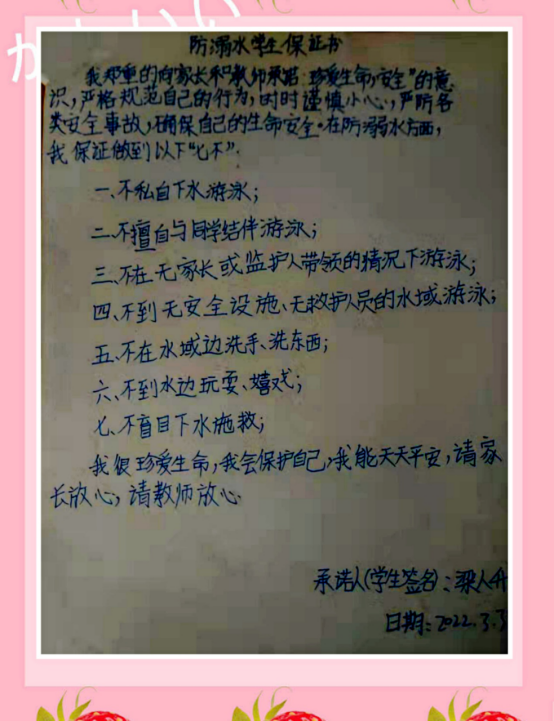 かわいい
防溺水学生保证书
我郑重的向家长和教师承诺:珍爱生命,安全"的意
识,严格规范自己的行为,时时谨慎小心,严防各
类安全事故,确保自己的生命安全。在防溺水方面,
我保证做到以下"七不":
一、不私自下水游泳;
二、不擅自与同学结伴游泳;
三、不在无家长或监护人带领的情况下游泳;
四、不到无安全设施、无救护人员的水域游泳;
五、不在水域边洗手、洗东西;
六、不到水边玩耍、嬉戏;
七、不盲目下水施救;
我很珍爱生命,我会保护自己,我能天天平安,请家
长放心,请教师放心
承诺人(学生签名):梁人
日期:2022.3.3